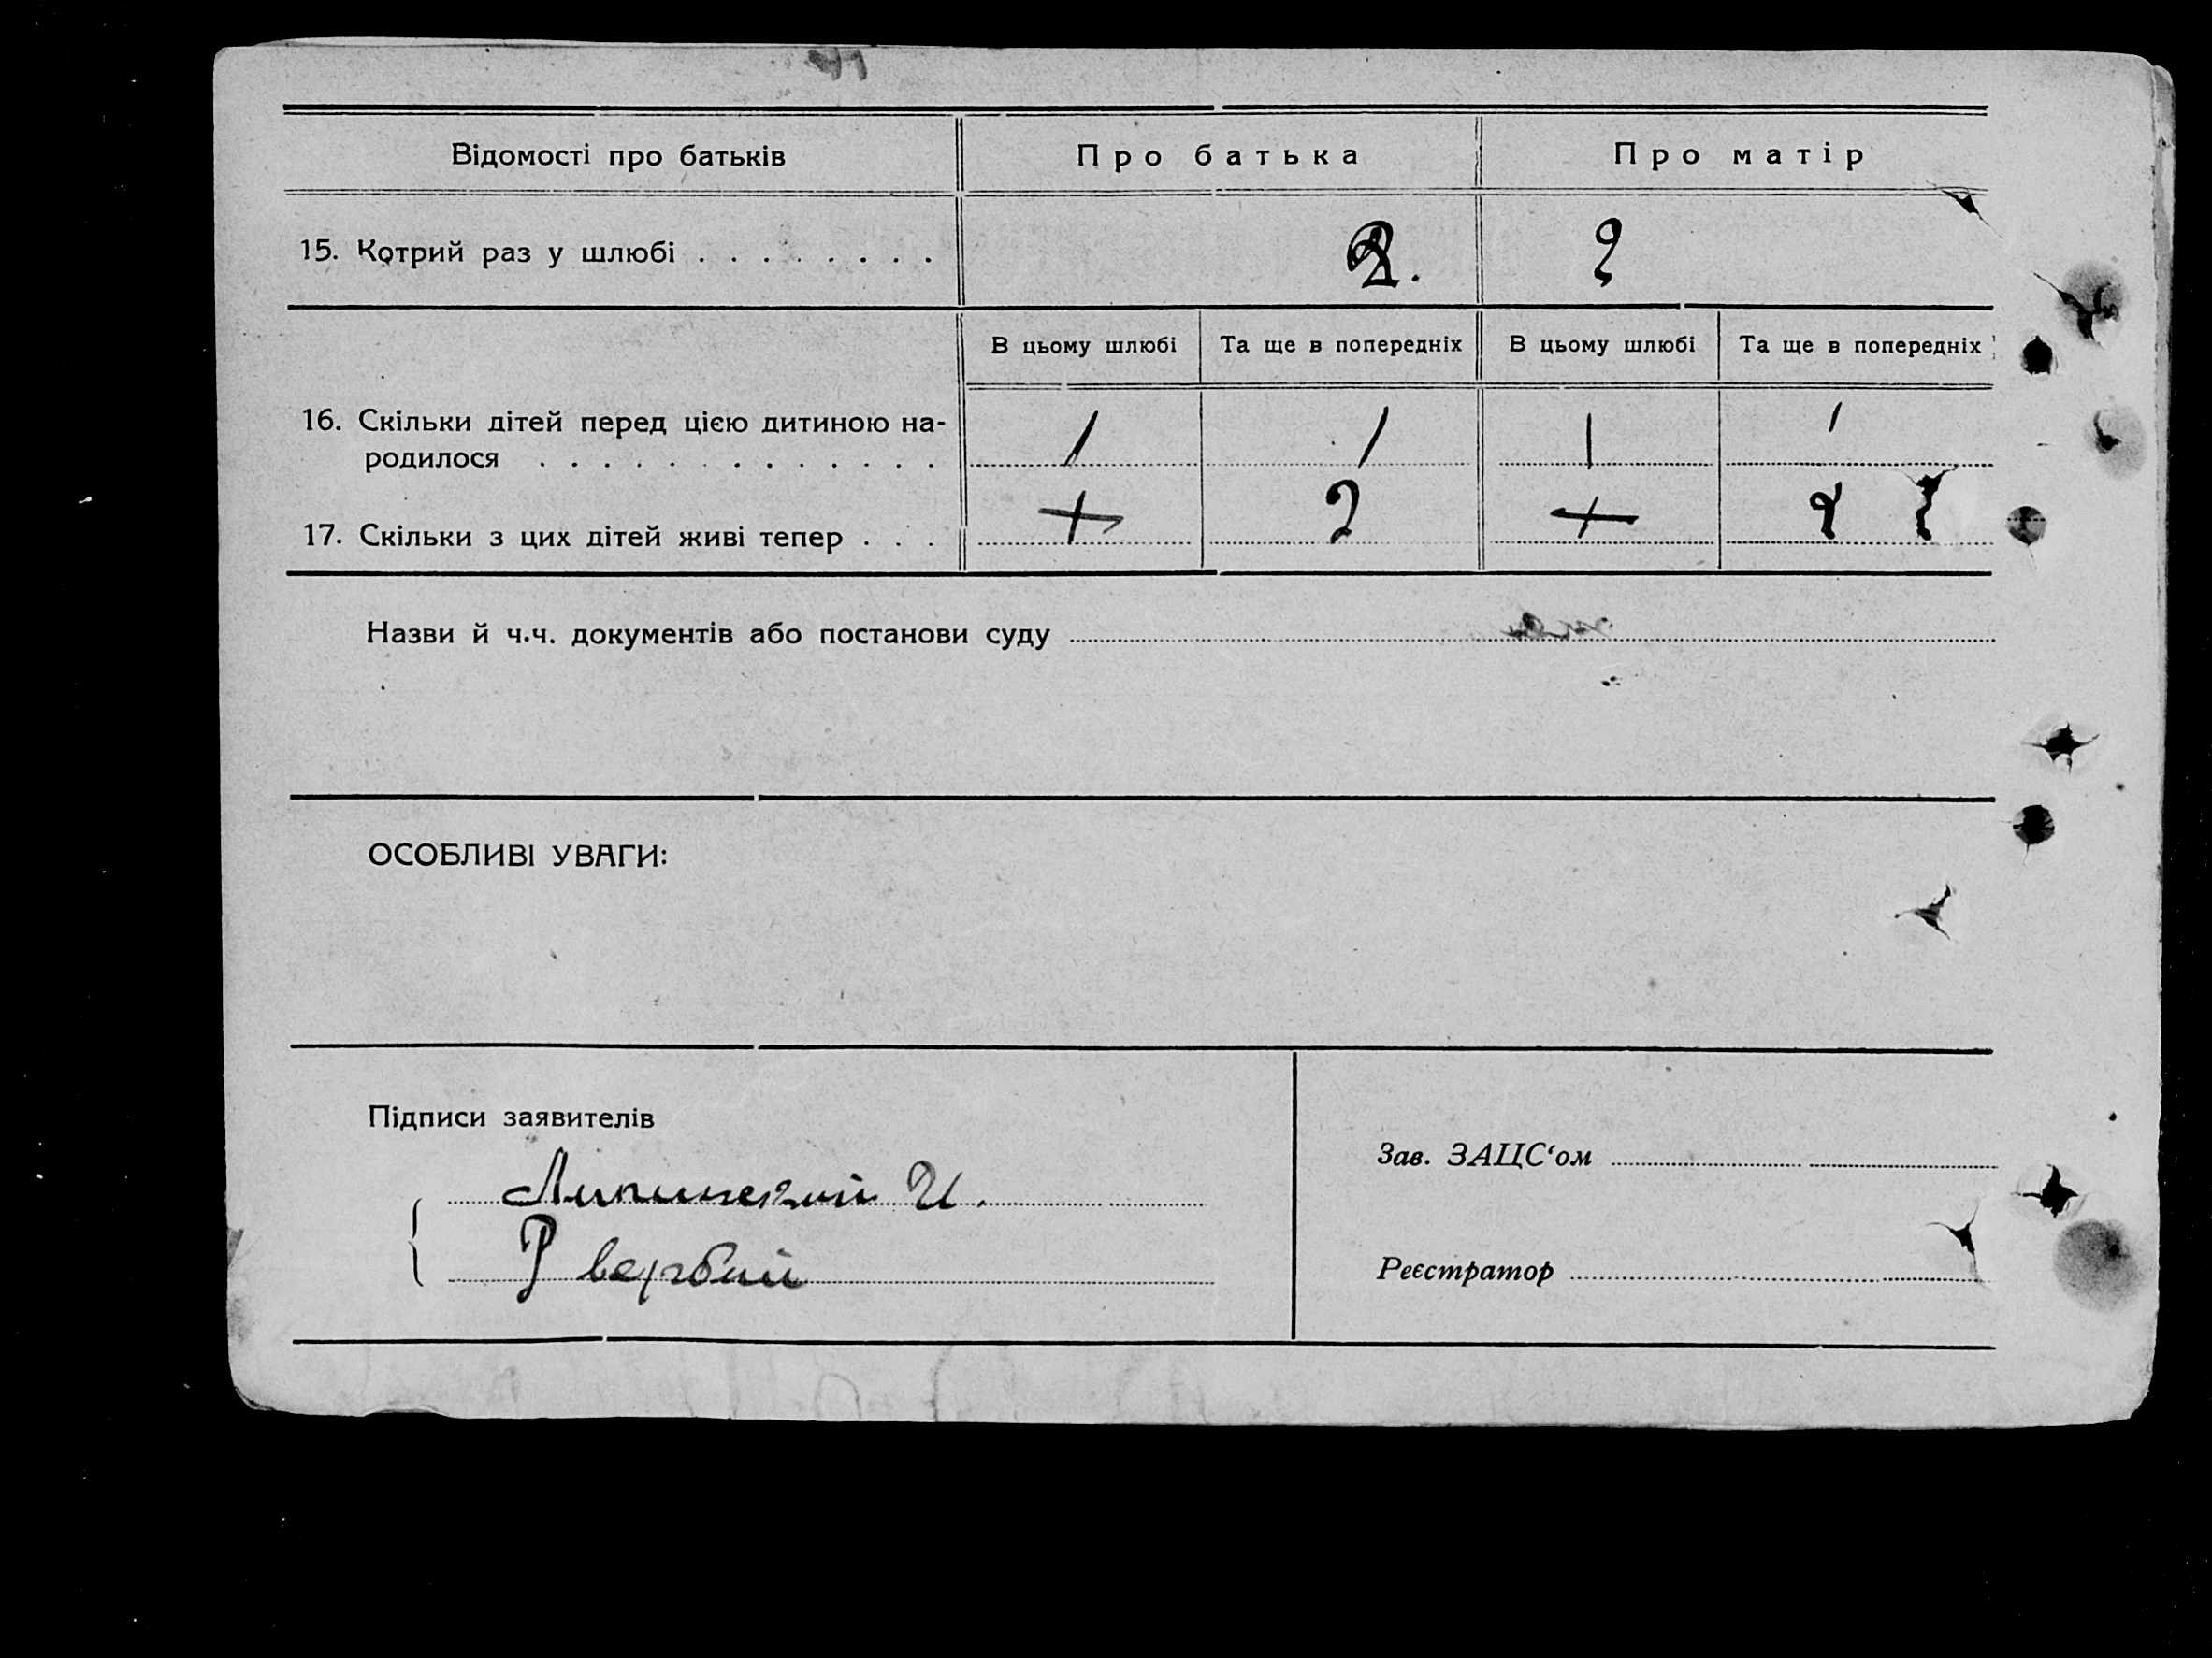 Відомості про батьків Про батька Про матір
15. Котрий раз у шлюбі . . . . . . . . 2. 2
В цьому шлюбі Та ще в попередніх В цьому шлюбі Та ще в попередніх
16. Скільки дітей перед цією дитиною на-
родилося . . . . . . . . . . . . . 1 1 1 1
17. Скільки з цих дітей живі тепер . . . + 2 +
Назви й ч.ч. документів або постанови суду
ОСОБЛИВІ УВАГИ:
Підписи заявителів
Зав. ЗАЦС‘ом
Липинский И.
Реєстратор
Р вербий